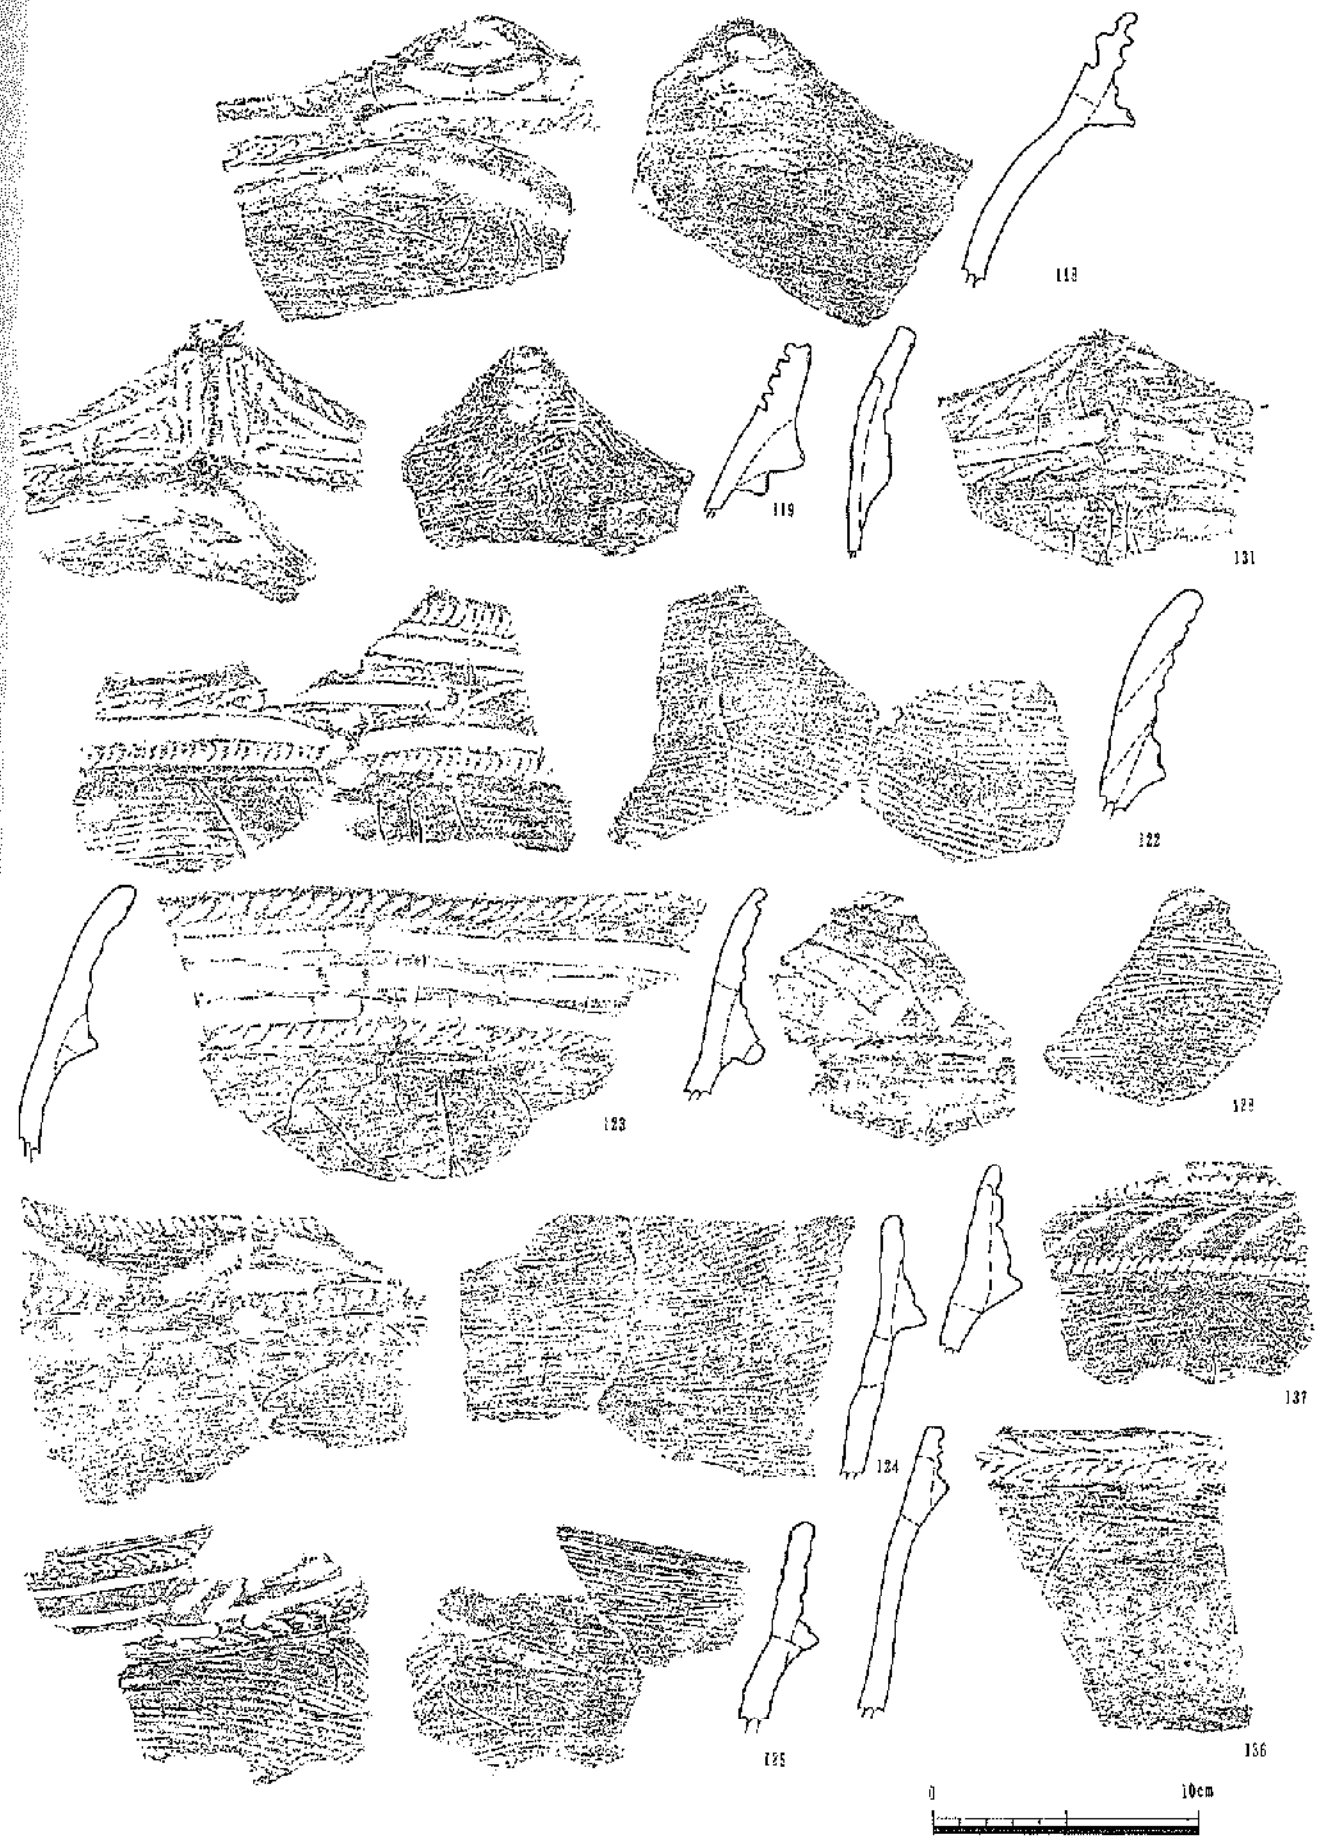 118
119
131
122
123
128
137
124
136
0 10cm